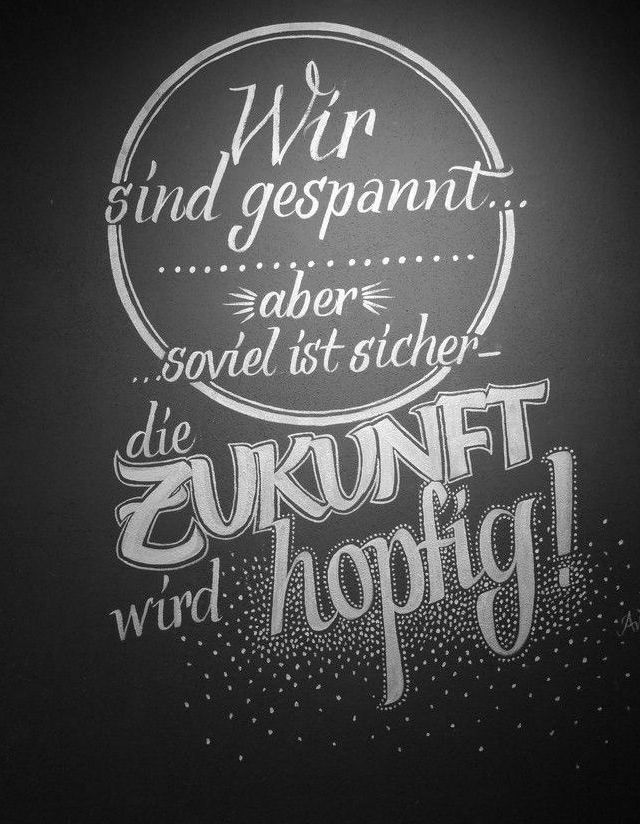 Wir
sind gespannt...
aber
...soviel ist sicher-
die
ZUKUNFT
wird hopfig!